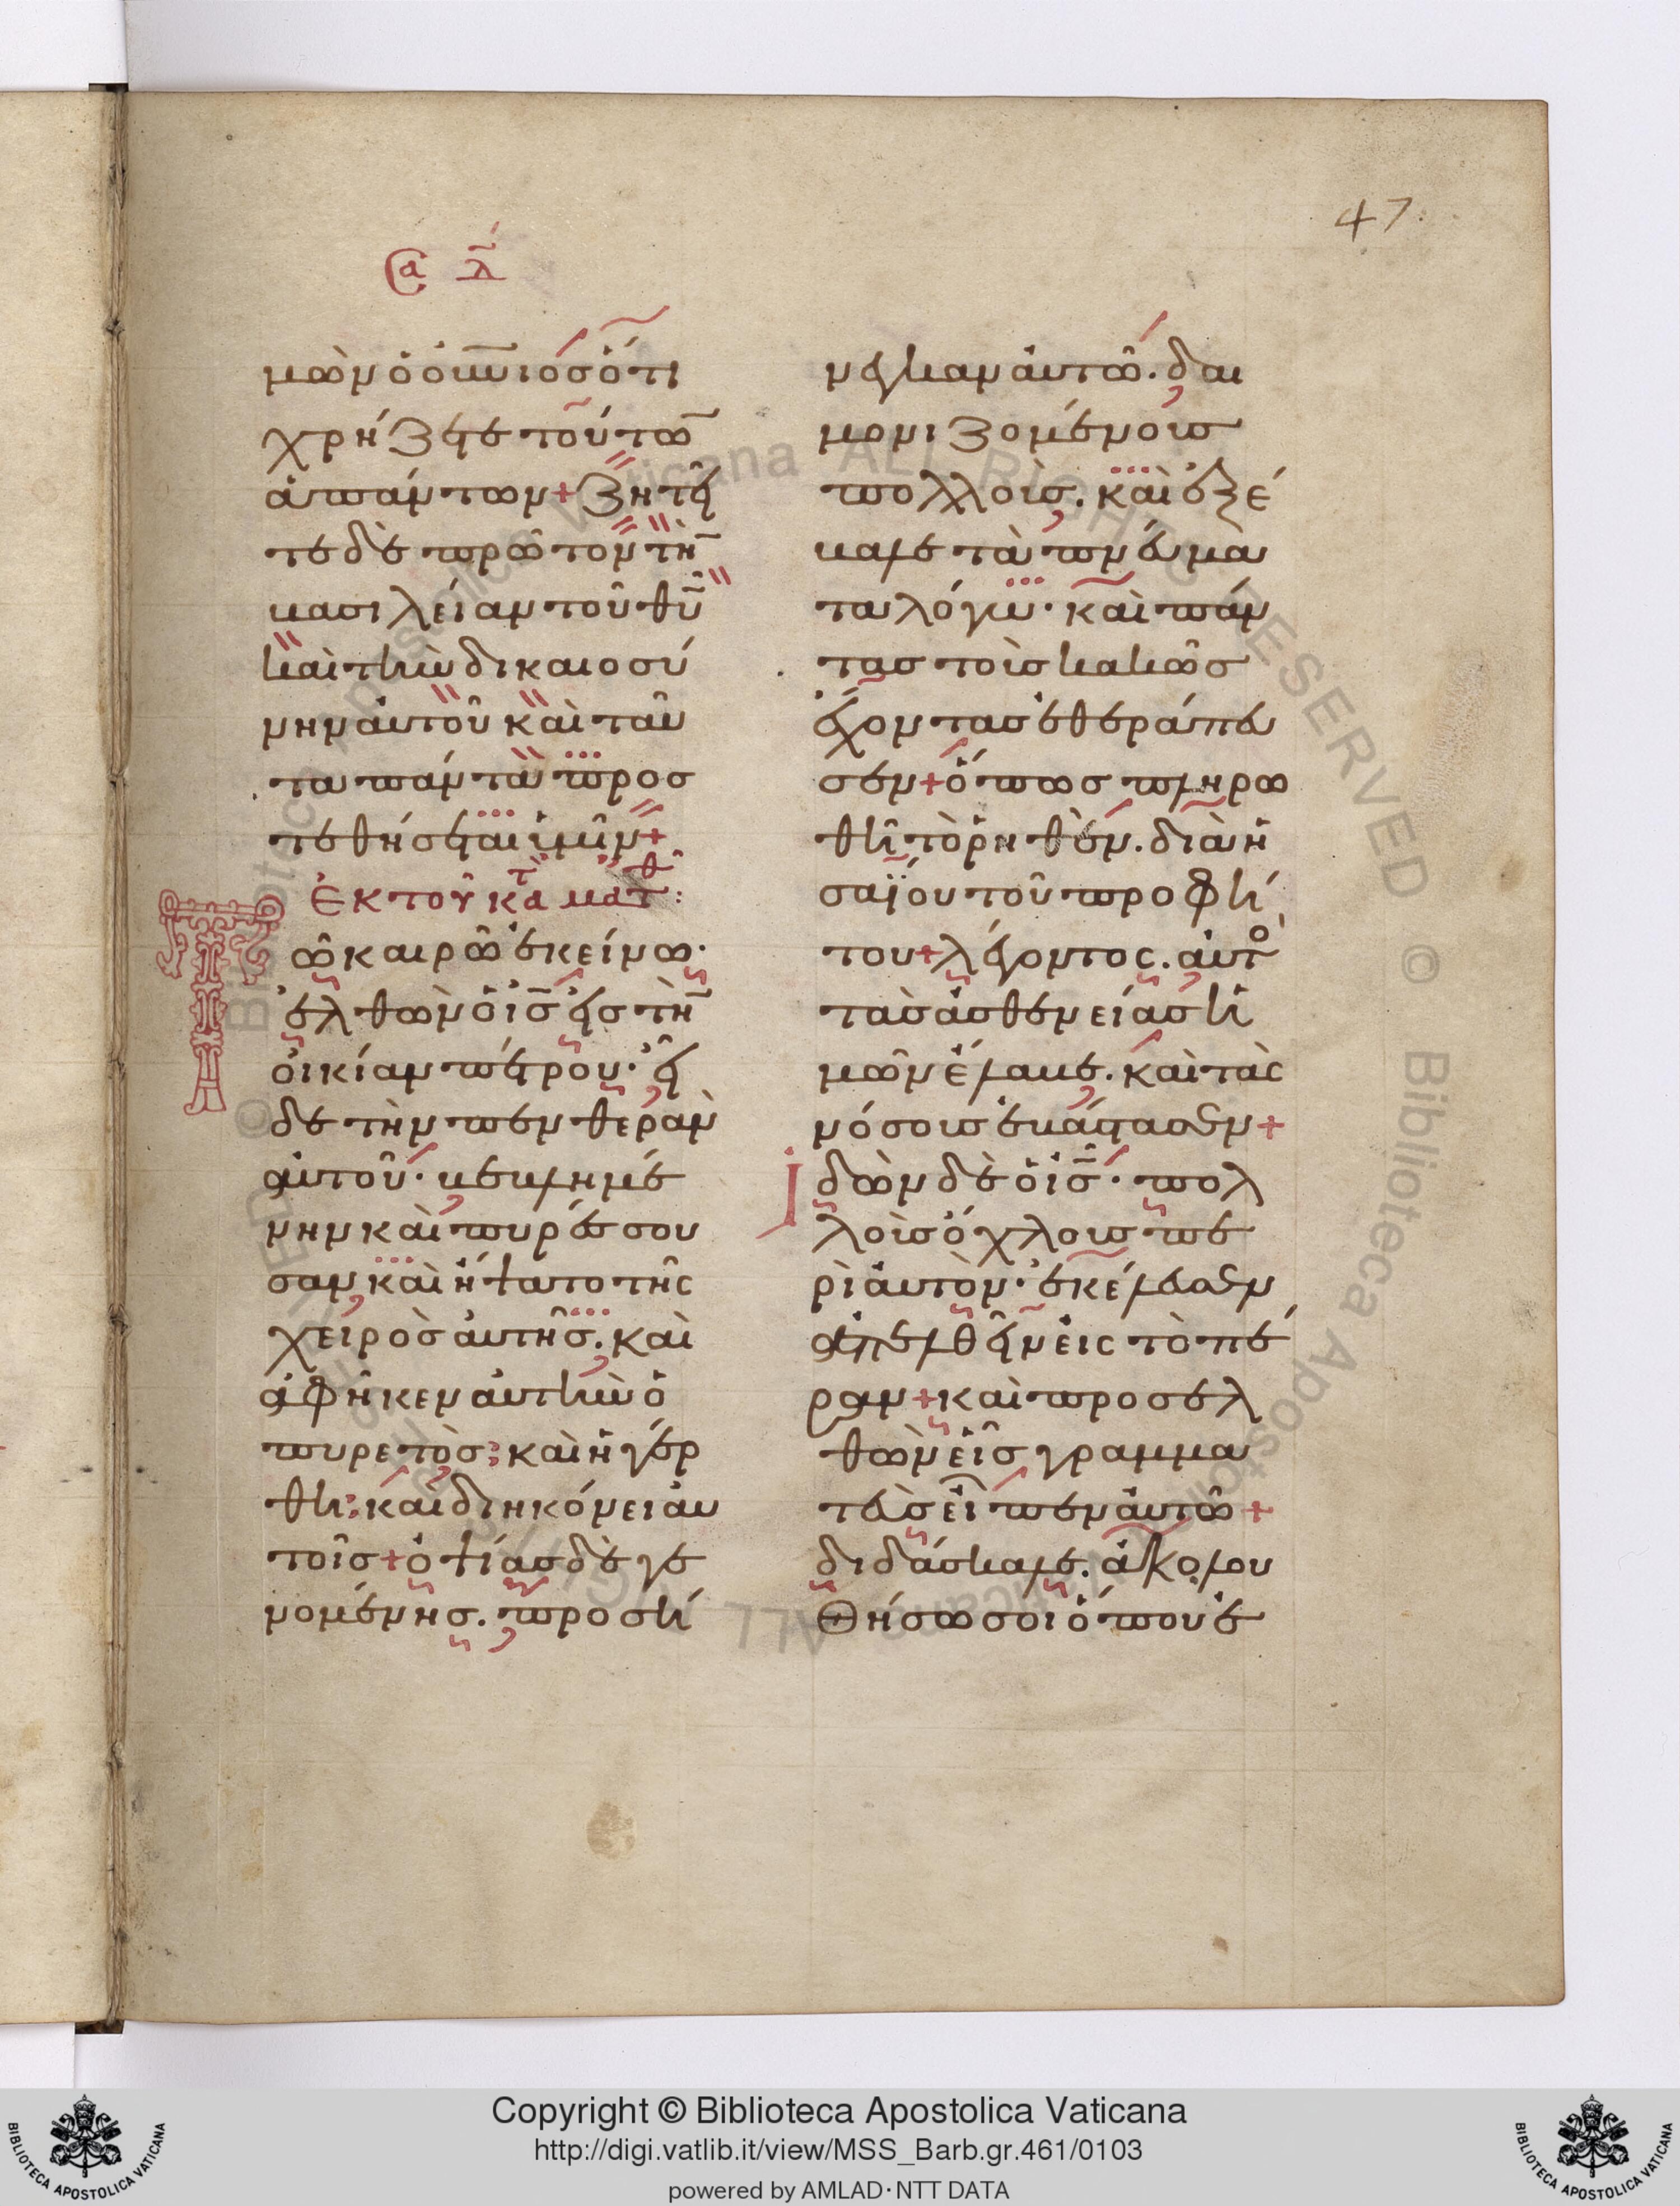 47
Σα λ
μῶν ὁ οὐνιος ὅτι
χρήζετε τούτω
ἁπάντων + ζητεῖ
τε δὲ πρῶτον τὴ
βασιλείαν τοῦ θυ
καὶ τὴν δικαιοσύ
νην αὐτοῦ καὶ ταῦ
τα πάντα προσ
τεθήσεται ὑμῖν +
ἐκ τοῦ κτα ματθ :
Τῶ καιρῶ ἐκείνω ·
ἐλθὼν ὁ ισ εἰς τὴ
οἰκίαν πέτρου · εἶ
δε τὴν πενθερὰν
αὐτοῦ · βεβλημέ
νην καὶ πυρέσσου
σαν καὶ ἥψατο τῆς
χειρὸς αὐτῆς . καὶ
ἀφῆκεν αὐτὴν ὁ
πυρετὸς : καὶ ἠγέρ
θη : καὶ διηκόνει αὐ
τοῖς + ὀψίας δὲ γε
νομένης . προσή
νεγκαν αὐτῶ . δαι
μονιζομένους
πολλούς . καὶ ἐξέ
βαλε τὰ πνεύμα
τα λόγω · καὶ πάν
τας τοὺς κακῶς
ἔχοντας ἐθεράπευ
σεν + ὅπως πληρω
θῆ τὸ ῥηθὲν . διὰ ἡ
σαΐου τοῦ προφή
του + λέγοντος . αὐτὸ
τὰς ἀσθενείας ἡ
μῶν ἔλαβε . καὶ τὰς
νόσους ἐβάστασεν +
Ἰδὼν δὲ ὁ ισ · πολ
λοὺς ὄχλους πε
ρὶ αὐτὸν · ἐκέλευσεν
ἀπελθεῖν εἰς τὸ πέ
ραν + καὶ προσελ
θὼν εἷς γραμμα
τεὺς εἶπεν αὐτῶ +
διδάσκαλε . ἀκολου
θήσω σοι ὅπου ἐ
Copyright © Biblioteca Apostolica Vaticana
http://digi.vatlib.it/view/MSS_Barb.gr.461/0103
powered by AMLAD·NTT DATA
BIBLIOTECA APOSTOLICA VATICANA
BIBLIOTECA APOSTOLICA VATICANA